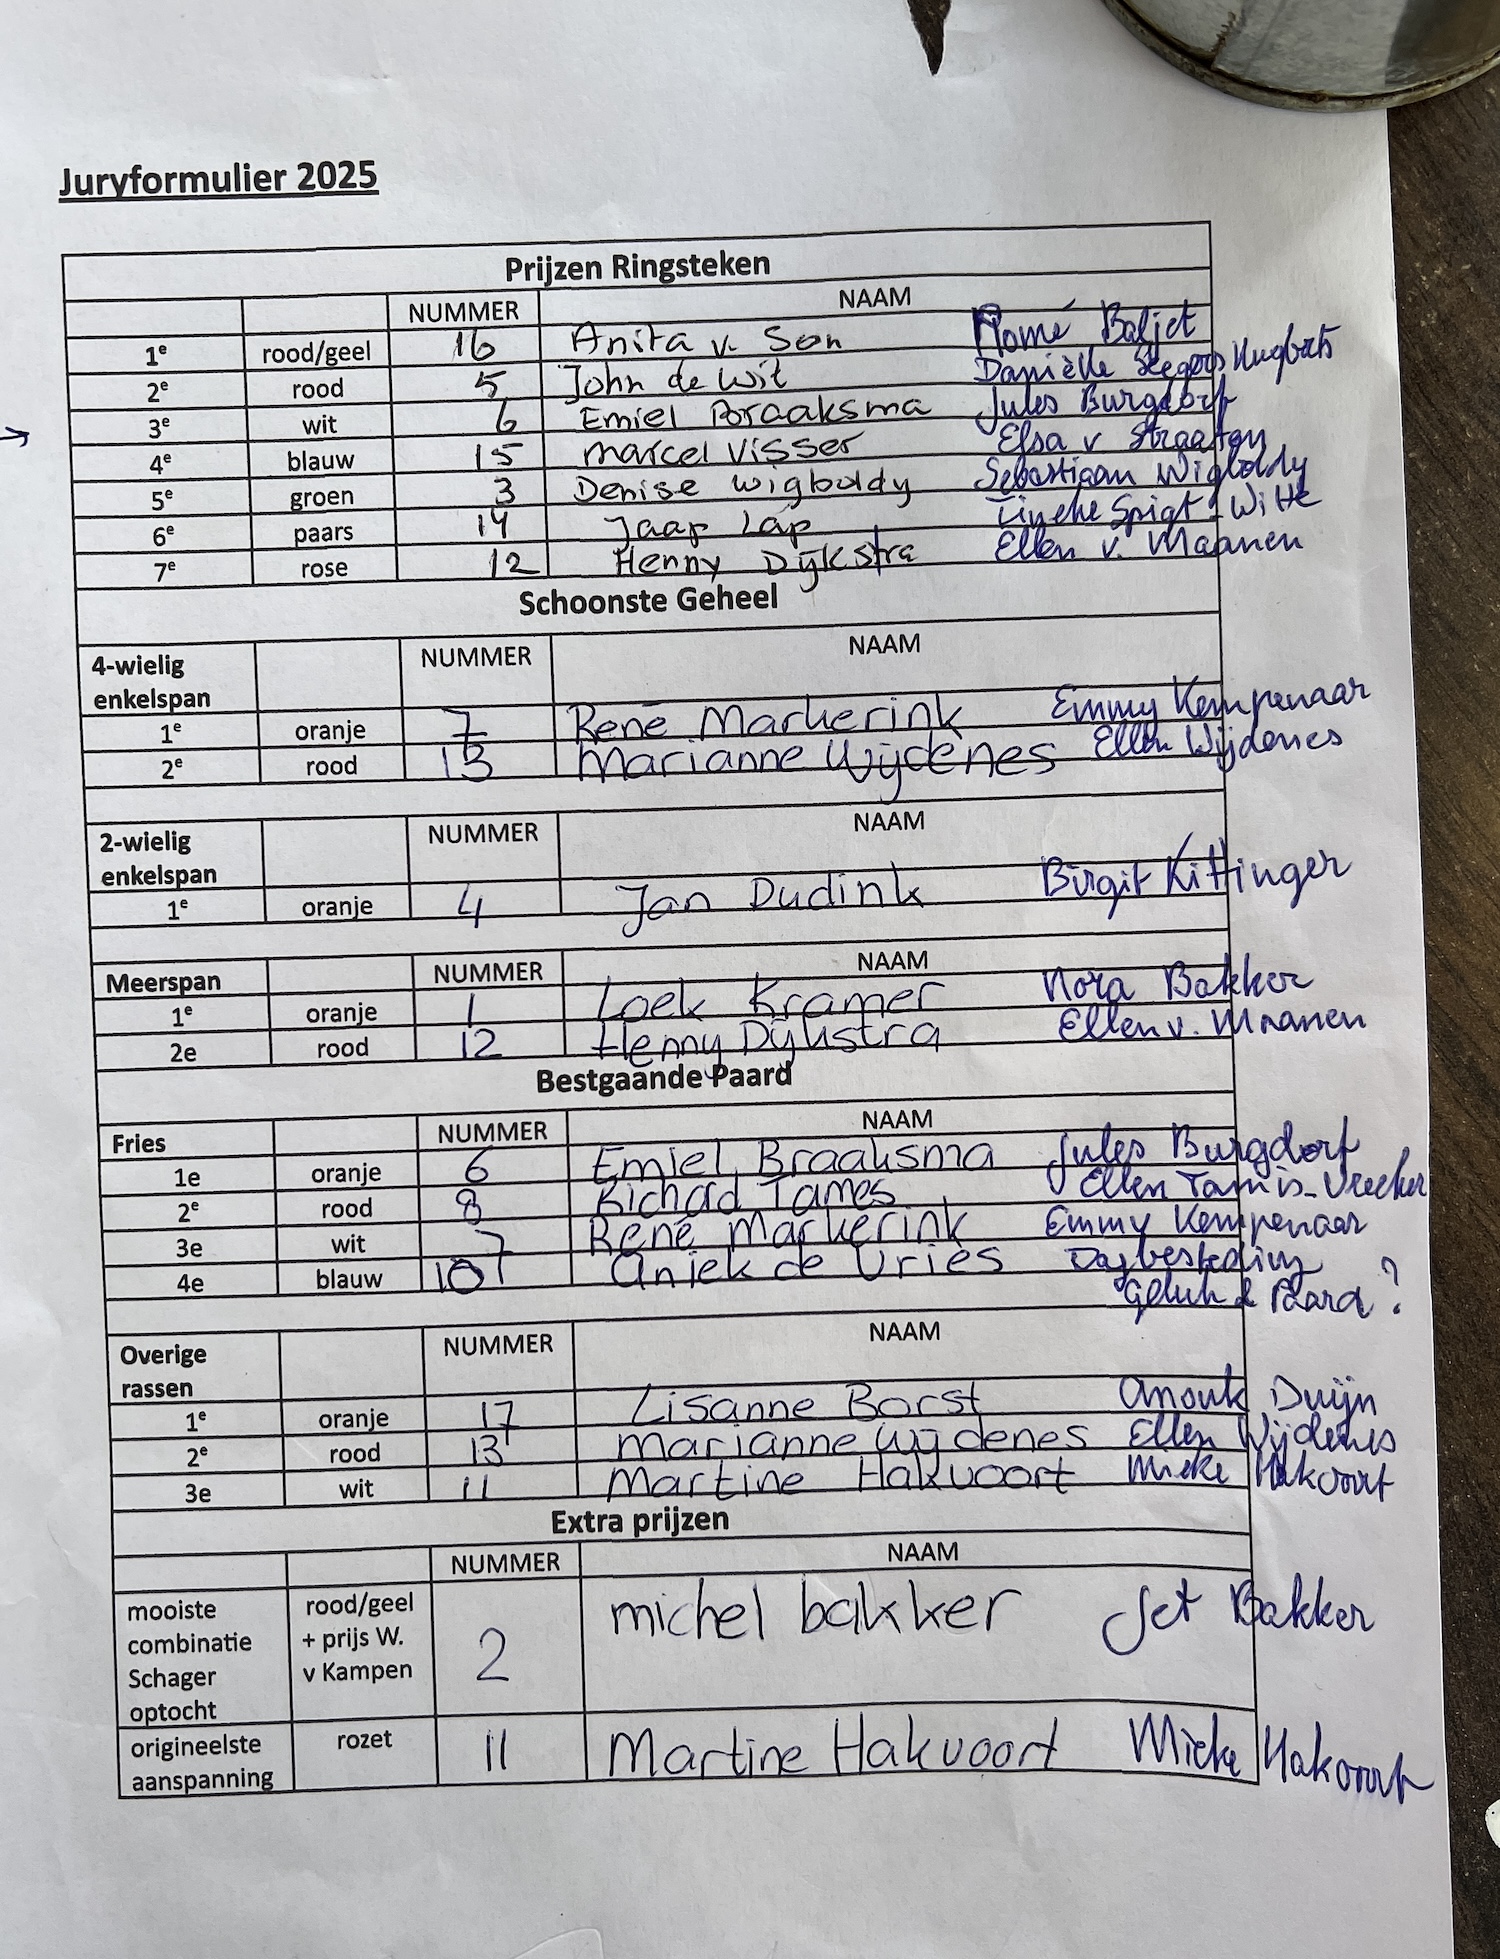 Juryformulier 2025
Prijzen Ringsteken
NUMMER NAAM
1e rood/geel 16 Anita v. Son Romé Baljet
2e rood 5 John de Wit Daniëlle Hugbots
→ 3e wit 6 Emiel Braaksma Jules Burgdorf
4e blauw 15 marcel Visser Elsa v Straaten
5e groen 3 Denise Wigboldy Sebastiaan Wigboldy
6e paars 14 Jaap Lap Tineke Spigt-Witte
7e rose 12 Henny Dijkstra Ellen v. Maanen
Schoonste Geheel
4-wielig NUMMER NAAM
enkelspan
1e oranje 7 René Markerink Emmy Kempenaar
2e rood 13 Marianne Wijdenes Ellen Wijdenes
2-wielig NUMMER NAAM
enkelspan
1e oranje 4 Jan Dudink Birgit Kittinger
Meerspan NUMMER NAAM
1e oranje 1 Loek Kramer Nora Bakker
2e rood 12 Henny Dijkstra Ellen v. Maanen
Bestgaande Paard
Fries NUMMER NAAM
1e oranje 6 Emiel Braaksma Jules Burgdorf
2e rood 8 Richard Tames Ellen Tamis-Vrecker
3e wit 7 René Markerink Emmy Kempenaar
4e blauw 10 Aniek de Vries Dagbesteding
Geluk & Paard?
Overige NUMMER NAAM
rassen
1e oranje 17 Lisanne Borst Anouk Duijn
2e rood 13 Marianne Wijdenes Ellen Wijdenes
3e wit 11 Martine Hakvoort Mieke Hakvoort
Extra prijzen
NUMMER NAAM
mooiste rood/geel michel bakker Jet Bakker
combinatie + prijs W. 2
Schager v Kampen
optocht
origineelste rozet 11 Martine Hakvoort Mieke Hakvoort
aanspanning